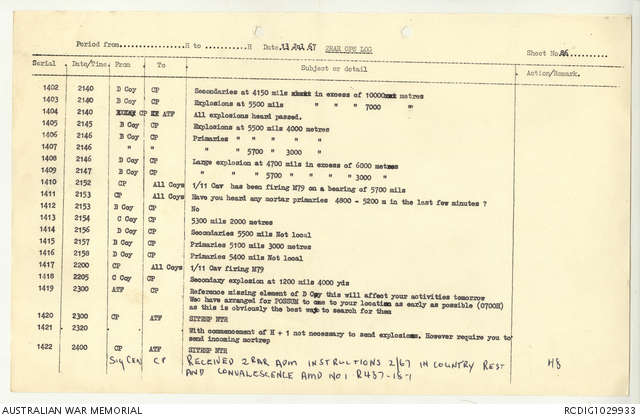 Period from..................H to ...........H Date.11 Jul 67 2RAR OPS LOG
Sheet No.86..........
Serial Date/Time. From To Subject or detail Action/Remark.
1402 2140 D Coy CP Secondaries at 4150 mils in excess of 10000 metres
1403 2140 B Coy CP Explosions at 5500 mils " " " 7000 "
1404 2140 CP ATF All explosions heard passed.
1405 2145 B Coy CP Explosions at 5500 mils 4000 metres
1406 2146 B Coy CP Primaries " " " "
1407 2146 " " " 5700 " 3000 "
1408 2146 D Coy CP Large explosion at 4700 mils in excess of 6000 metres
1409 2147 B Coy CP " " " 5700 " " " " 3000 "
1410 2152 CP All Coys 1/11 Cav has been firing M79 on a bearing of 5700 mils
1411 2153 CP All Coys Have you heard any mortar primaries 4800 - 5200 m in the last few minutes ?
1412 2153 B Coy CP No
1413 2154 C Coy CP 5300 mils 2000 metres
1414 2156 D Coy CP Secondaries 5500 mils Not local
1415 2157 B Coy CP Primaries 5100 mils 3000 metres
1416 2158 D Coy CP Primaries 5400 mils Not local
1417 2200 CP All Coys 1/11 Cav firing M79
1418 2205 C Coy CP Secondary explosion at 1200 mils 4000 yds
1419 2300 ATF CP Reference missing element of D Coy this will affect your activities tomorrow
We have arranged for POSSUM to come to your location as early as possible (0700H)
as this is obviously the best way to search for them
1420 2300 CP ATF SITREP NTR
1421 2320
With commencement of H + 1 not necessary to send explosions. However require you to
send incoming mortrep
1422 2400 CP ATF SITREP NTR
Sig Cen CP RECEIVED 2RAR ADM INSTRUCTIONS 2/67 IN COUNTRY REST
AND CONVALESCENCE AMD NO1 R487-15-1
AUSTRALIAN WAR MEMORIAL
RCDIG1029933